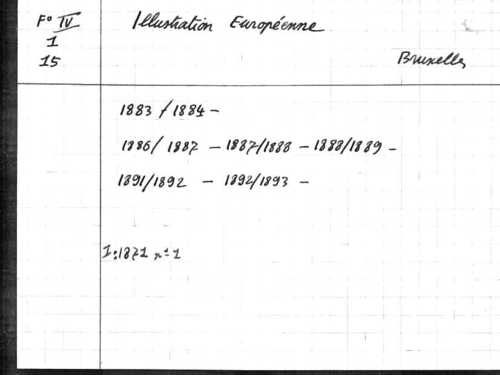 F° IV
1
15
Illustration Européenne
Bruxelles
1883/1884 -
1886/1887 - 1887/1888 - 1888/1889 -
1891/1892 - 1892/1893 -
I:1871 n°1